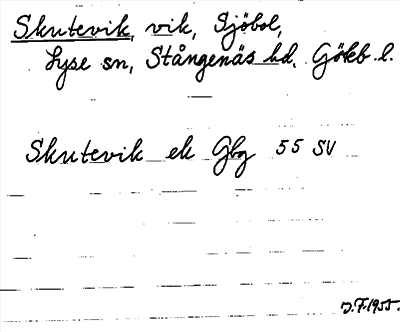 Skutevik, vik, Sjöbol,
Lyse sn, Stångenäs hd, Göteb. l.
Skutevik ek Gbg 55 SV
J.F. 1955.